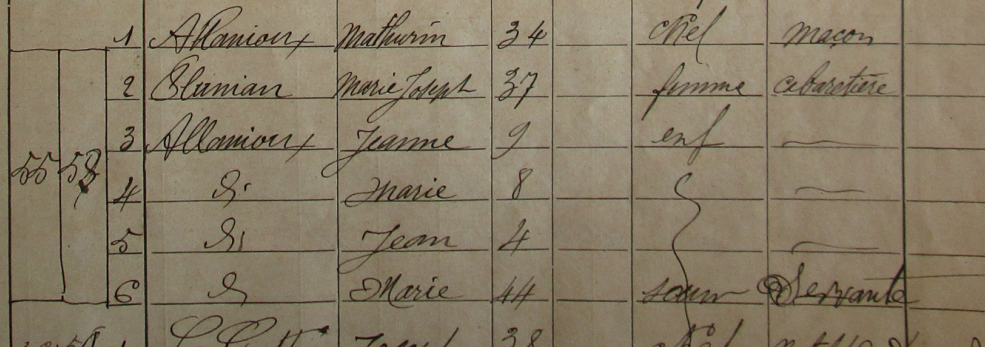 1 Allanioux Mathurin 34 chef maçon
2 Marie Joseph 37 femme cabaretière
3 Allanioux Jeanne 9 enf —
55 58
4 di Marie 8 —
5 di Jean 4 —
6 di Marie 44 soeur Servante
38 chef